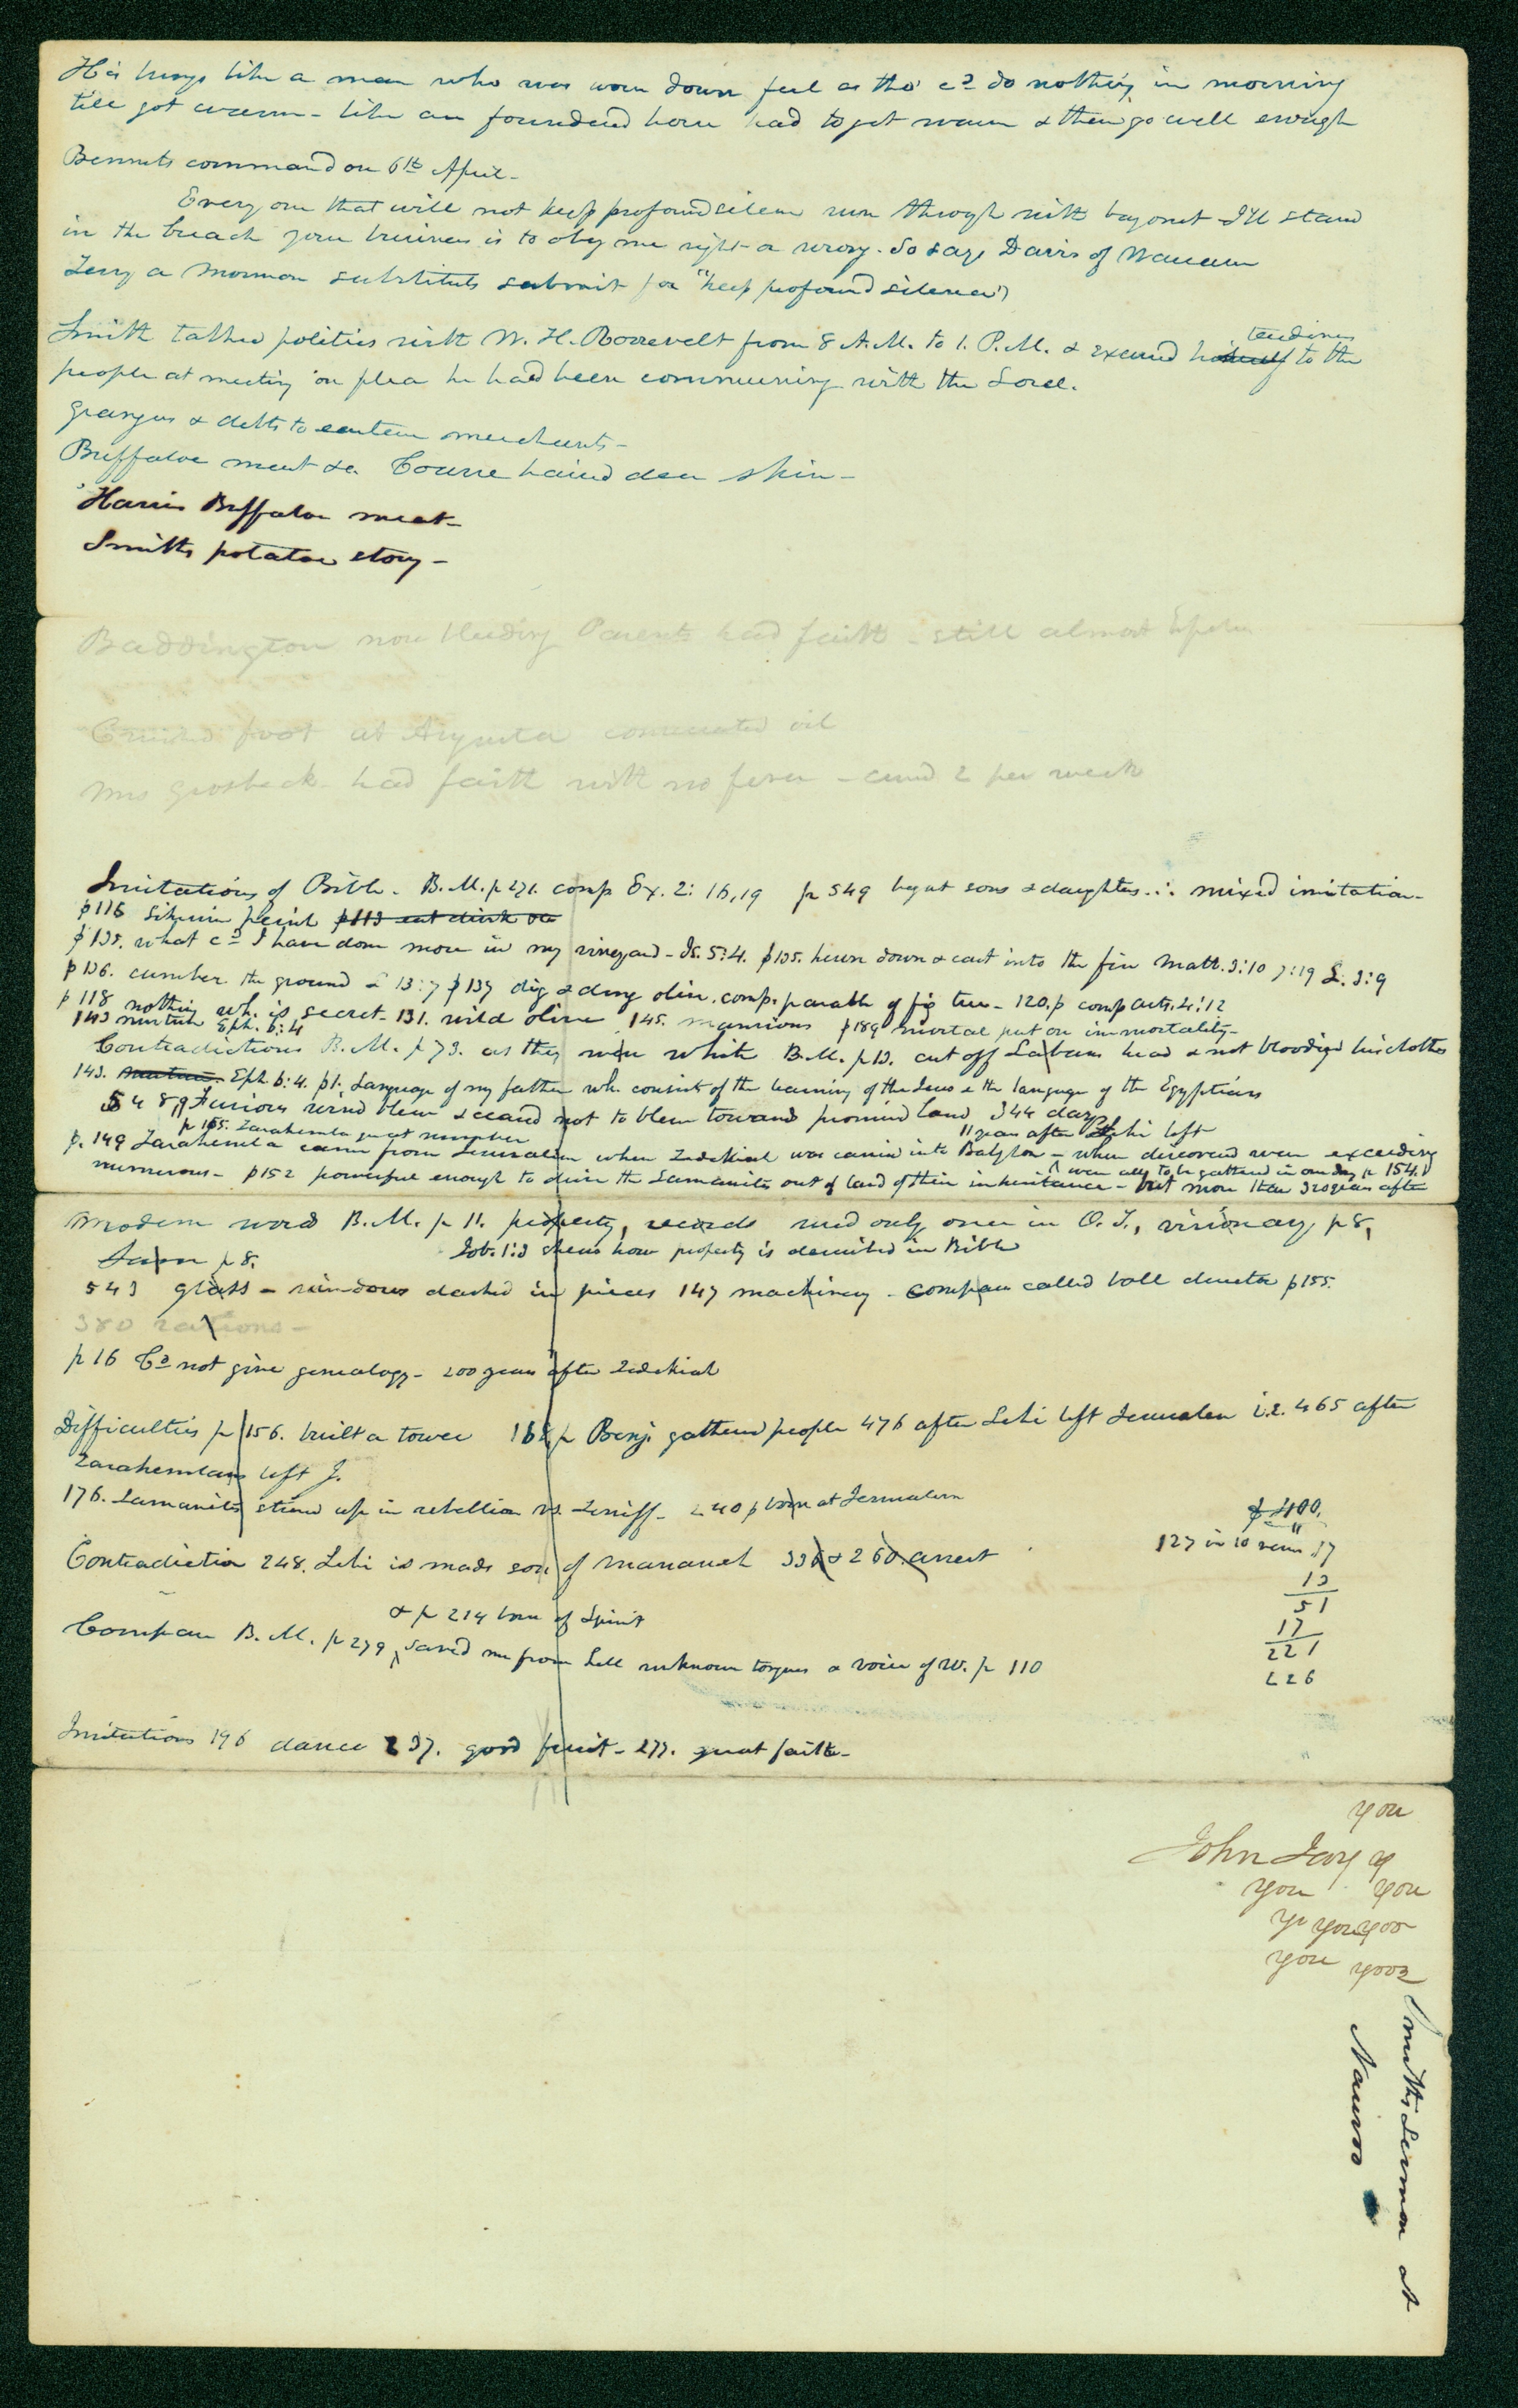 His lungs like a man who was worn down feel as tho' cd do nothing in morning
till got warm - like an foundered horse had to get warm & then go well enough
Bennets command on 6th April -
Every one that will not keep profound silence run through with bayonet I'll stand
in the breach your business is to obey me right or wrong. So says Davis of Warsaw
Terry a Mormon substitutes submit for "keep profound silence")
Smith talked politics with W. H. Roosevelt from 8 A.M. to 1. P.M. & excused his tardiness to the
people at meeting on plea he had been communing with the Lord.
grangus & debts to eastern merchants -
Buffaloe meat &c. Coarse haired deer skin -
Harris Buffaloe meat -
Smiths potatoe story -
Baddington now bleeding Parents had faith - still almost
Crushed foot at Augusta consecrated oil
Mrs Grosbeck had faith with no fever - cured 2 per week
Imitations of Bible - B. M. p 271. comp Ex. 2: 16, 19 p 549 begat sons & daughters ∴ mixed imitation -
p 116 p 113 eat drink &c
p 135. what cd I have done more in my vineyard - Is. 5:4. p 135. hewn down & cast into the fire Matt. 3:10 7:19 L. 3:9
p 136. cumber the ground L 13:7 p 137 dig & dung olive. comp. parable of fig tree - 120. p comp acts. 4:12
p 118 nothing wh. is secret - 131. wild olive 145. mansions p 189 mortal put on immortality -
143 nurture Eph. 6:4
Contradictions B. M. p 73. as they were white B. M. p 13. cut off Labans head & not bloodied his clothes
143. Eph. 6:4. p 1. Language of my father wh. consists of the learning of the Jews & the language of the Egyptians
548 9 Furious wind blew & ceased not to blow towards promised land 344 days
p 165. Zarahemla great number 11 years after Lehi left
p. 149 Zarahemla came from Jerusalem when Zedekiah was carried into Babylon - when discovered were exceeding
numerous - p 152 powerful enough to drive the Lamanites out of land of their inheritance - but more than 320 years after
were all to be gathered in one day p 154.)
Modern word B. M. p 11. property, records used only once in O. T., visionary p 8,
p 8. Job. 1:3 shews how property is described in Bible
543 glass - windows dashed in pieces 147 machinery - compass called ball director p 155.
380 rations -
p 16 Cd not give genealogy - 200 years after Zedekiah
Difficulties p 156. built a tower 168 p Benj. gathered people 476 after Lehi left Jerusalem i.e. 465 after
Zarahemlans left J.
176. Lamanites stirred up in rebellion vs. Zeniff - 240 p born at Jerusalem
p 400.
Contradiction 248. Lehi is made son of Manasseh 336 & 260. arrest
127 in 10 17
13
51
17
221
226
& p 214 born of Spirit
Compare B. M. p 279 saved me from hell unknown tongues & voice of W. p 110
Imitations 196 dance 237. good fruit - 277. great faith -
you
John Jay y
you you
yo you yoo
you yooz
Smiths Sermon at
Nauvoo